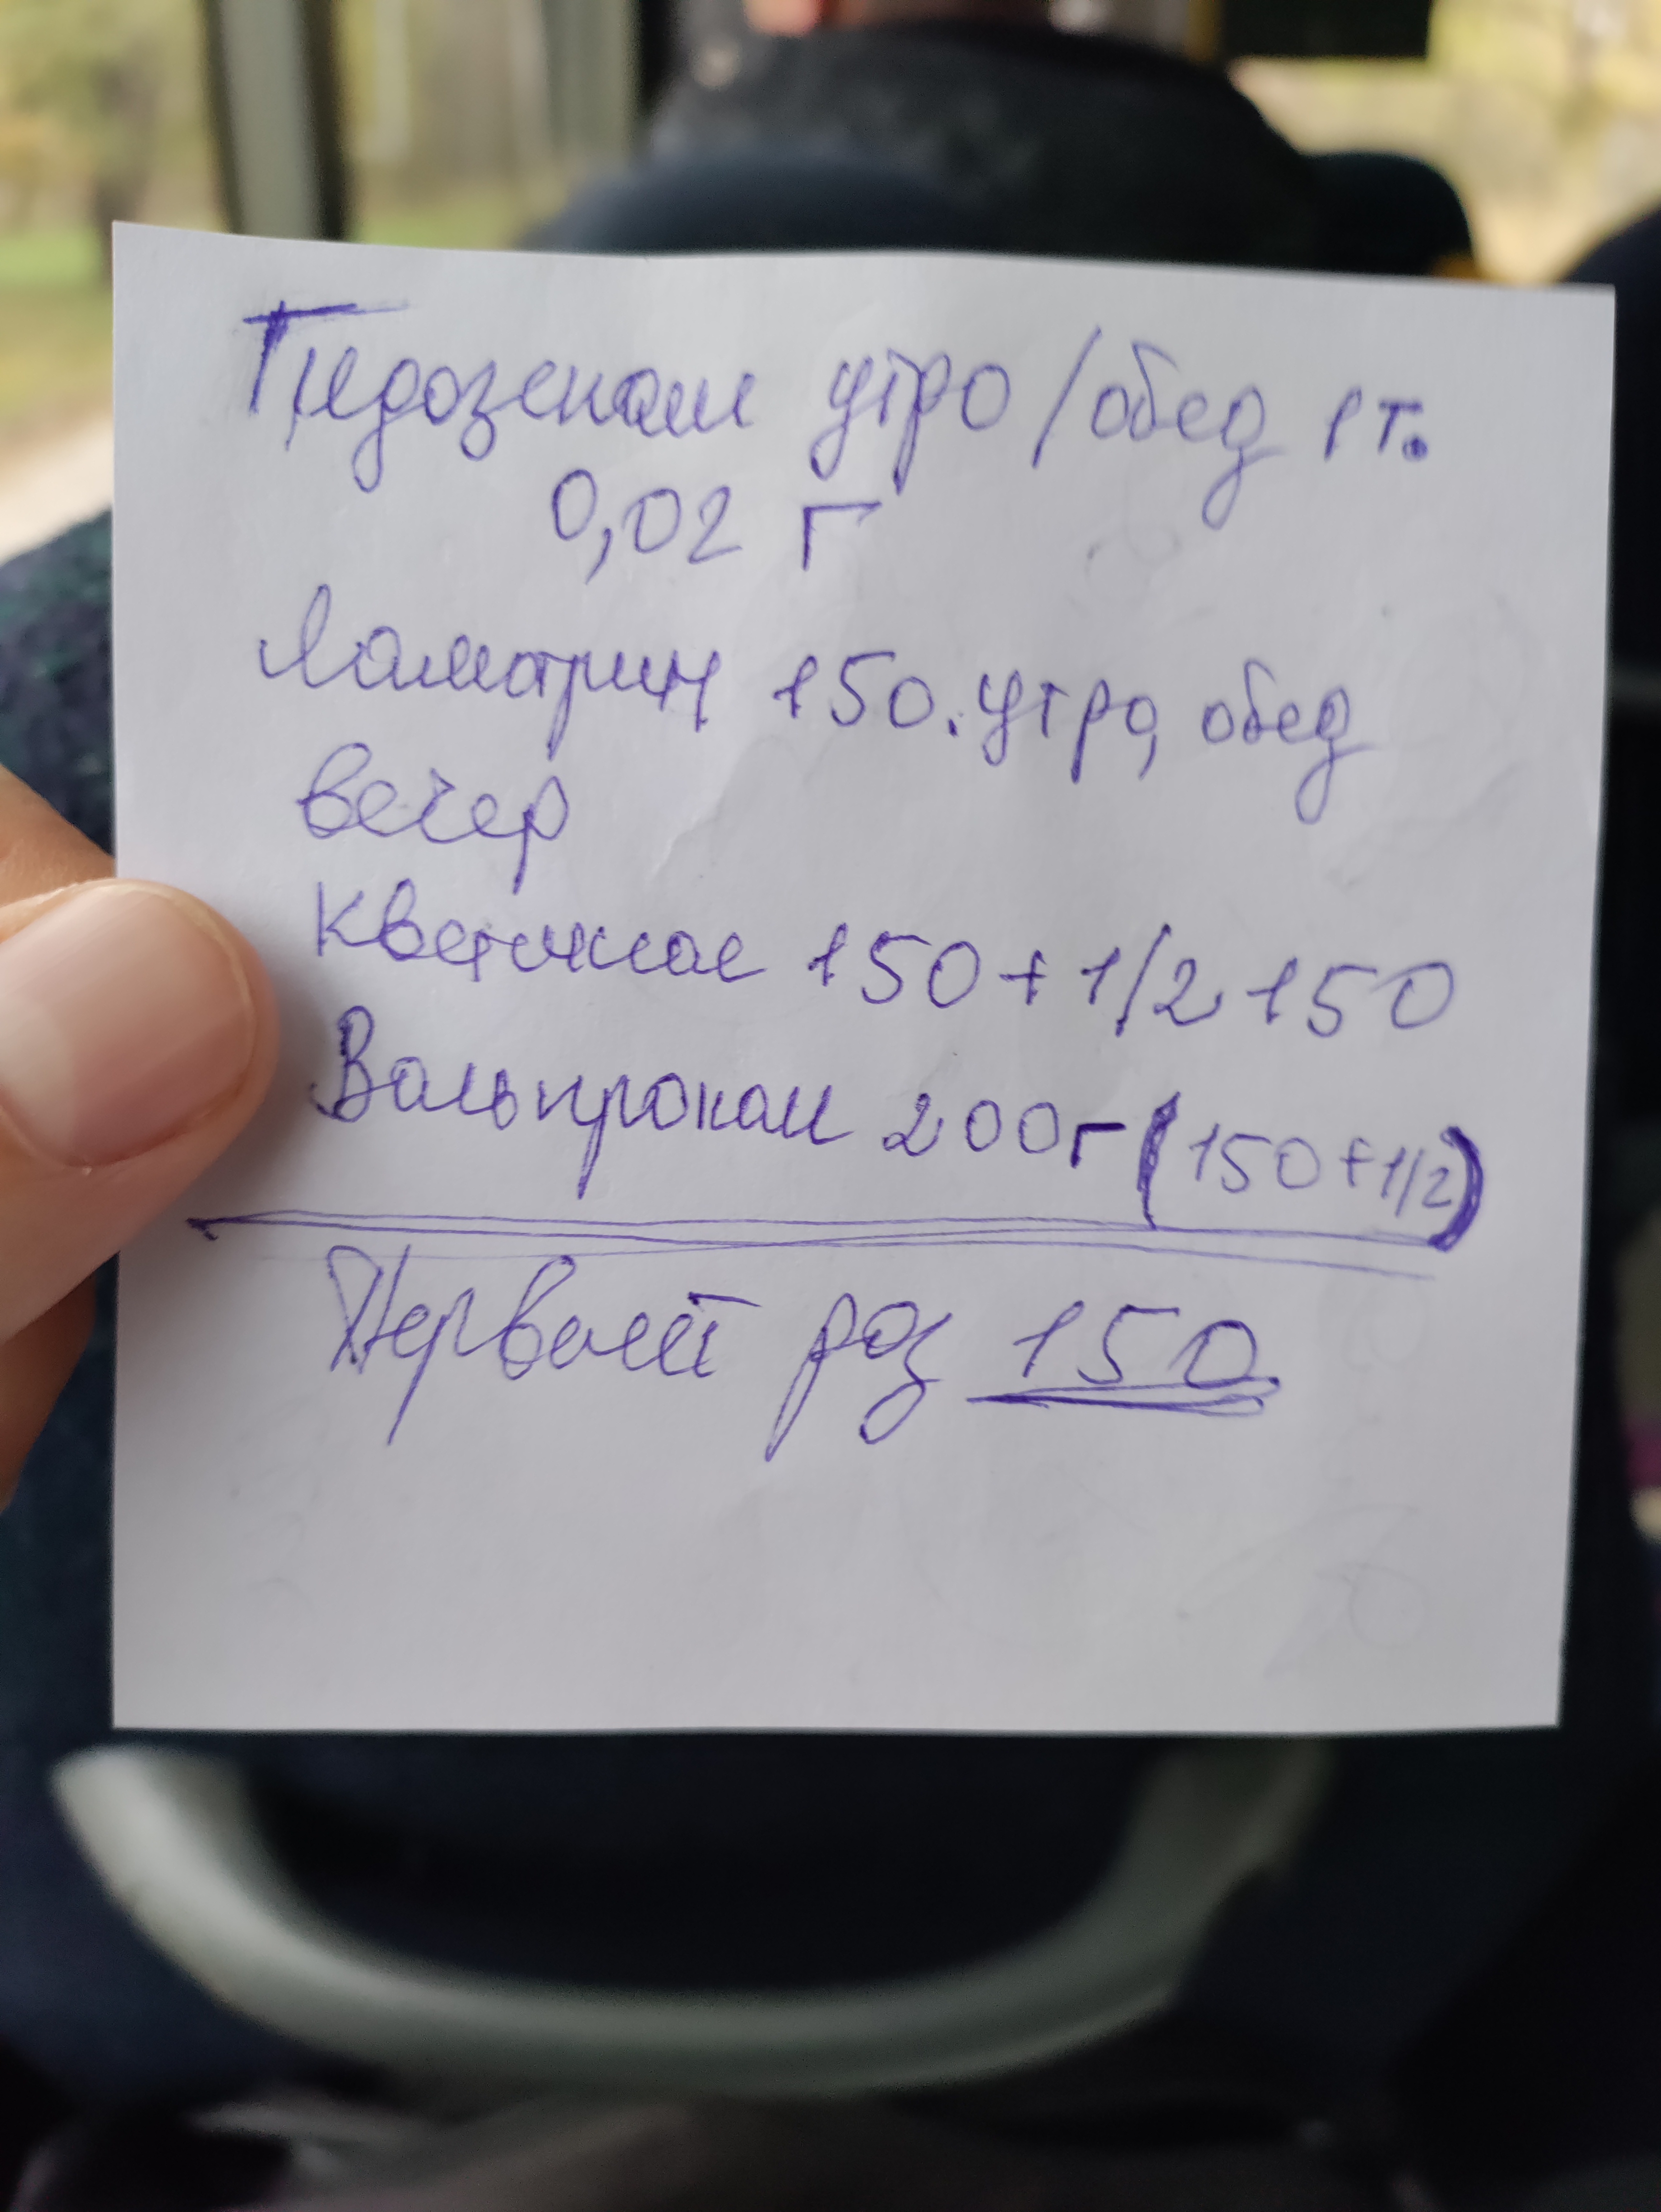 Гидозепам утро/обед 1 т.
0,02 Г
Ламотрин 150. утро, обед
вечер
Кветипное 150 + 1/2 150
Вальпроком 200г (150+1/2)
Первый раз 150